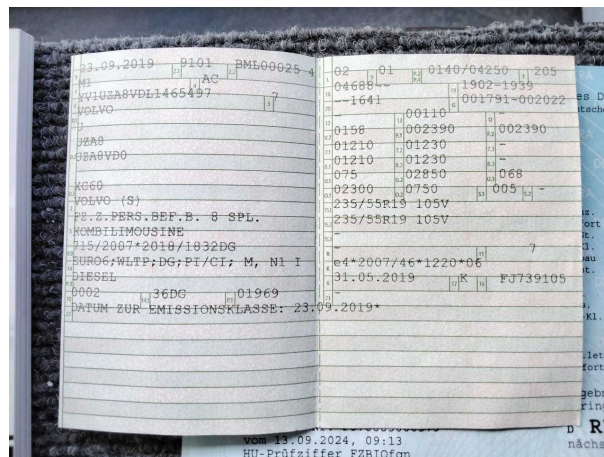 23.09.2019 9101 BML00025 4
M1 AC
YV1UZA8VDL1465497 7
VOLVO
U
UZA8
UZA8VD0
XC60
VOLVO (S)
FZ.Z.PERS.BEF.B. 8 SPL.
KOMBILIMOUSINE
715/2007*2018/1832DG
EURO6;WLTP;DG;PI/CI; M, N1 I
DIESEL
0002 36DG 01969
DATUM ZUR EMISSIONSKLASSE: 23.09.2019*
02 01 0140/04250 205
04688-- 1902-1939
--1641 001791-002022
- 00110 -
0158 002390 002390
01210 01230 -
01210 01230 -
075 02850 068
02300 0750 005 -
235/55R19 105V
235/55R19 105V
-
- 7
e4*2007/46*1220*06
31.05.2019 K FJ739105
-
vom 13.09.2024, 09:13
HU-Prüfziffer